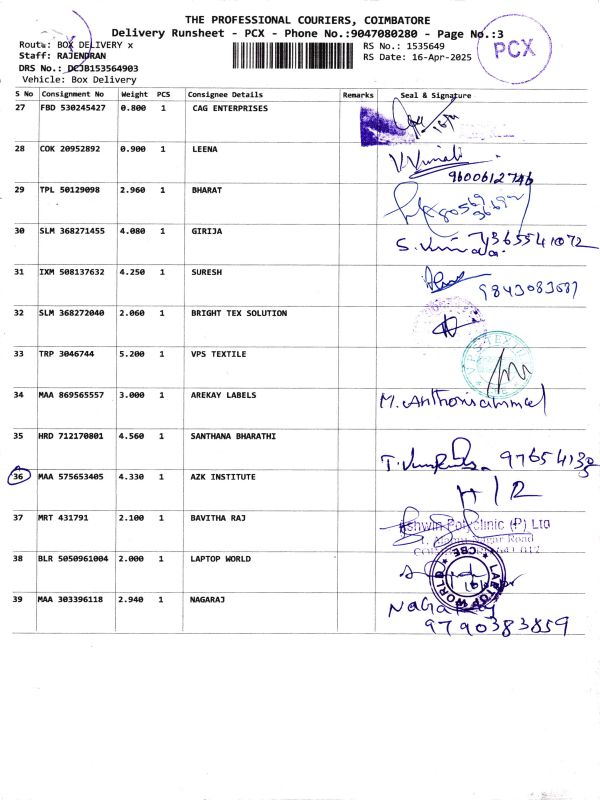 THE PROFESSIONAL COURIERS, COIMBATORE
Delivery Runsheet - PCX - Phone No.:9047080280 - Page No.:3
Route: BOX DELIVERY x
RS No.: 1535649
PCX
Staff: RAJENDRAN
RS Date: 16-Apr-2025
DRS No.: DCJB153564903
Vehicle: Box Delivery
S No Consignment No Weight PCS Consignee Details Remarks Seal & Signature
27 FBD 530245427 0.800 1 CAG ENTERPRISES
28 COK 20952892 0.900 1 LEENA
9600612746
29 TPL 50129098 2.960 1 BHARAT
30 SLM 368271455 4.080 1 GIRIJA
S.
31 IXM 508137632 4.250 1 SURESH
32 SLM 368272040 2.060 1 BRIGHT TEX SOLUTION
33 TRP 3046744 5.200 1 VPS TEXTILE
34 MAA 869565557 3.000 1 AREKAY LABELS
M. Anthoniammal
35 HRD 712170801 4.560 1 SANTHANA BHARATHI
36 MAA 575653405 4.330 1 AZK INSTITUTE
37 MRT 431791 2.100 1 BAVITHA RAJ
Ashwin Polyclinic (P) Ltd
38 BLR 5050961004 2.000 1 LAPTOP WORLD
LAPTOP WORLD
CBE
39 MAA 303396118 2.940 1 NAGARAJ
Nagaraj
9790383859